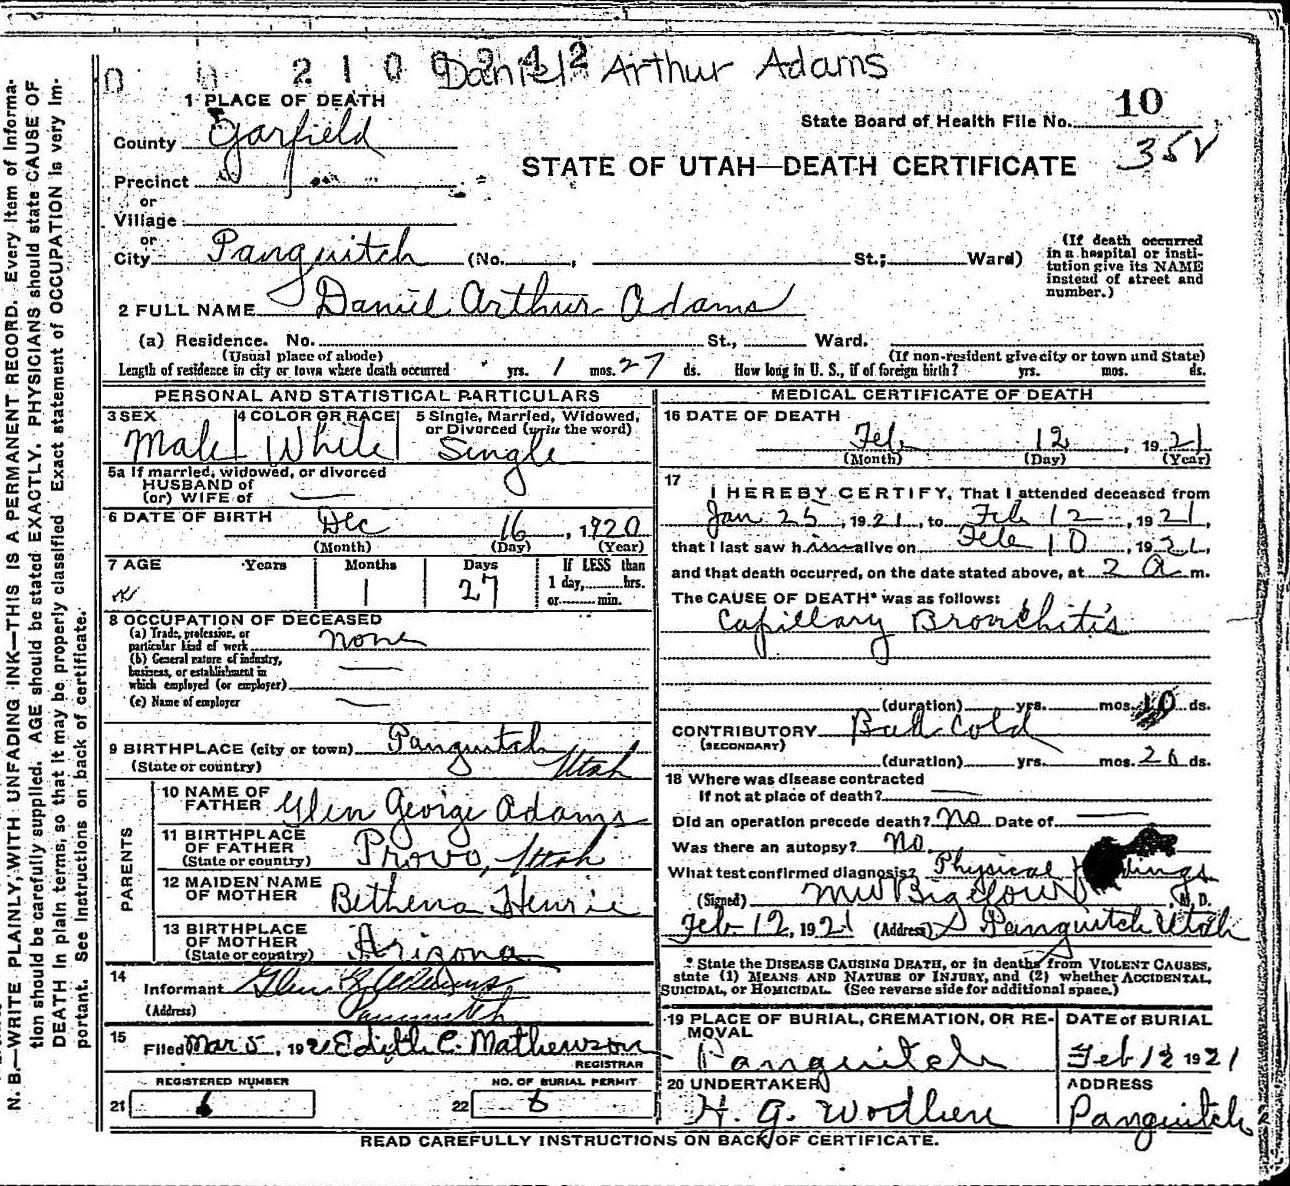 2 1 0 0 2 4 2 Daniel Arthur Adams
1 PLACE OF DEATH
10
State Board of Health File No.
County Garfield
35V
STATE OF UTAH—DEATH CERTIFICATE
Precinct
or
Village
or
City Panguitch (No. , St.; Ward)
(If death occurred in a hospital or institution give its NAME instead of street and number.)
2 FULL NAME Daniel Arthur Adams
(a) Residence. No. St., Ward.
(Usual place of abode) (If non-resident give city or town and State)
Length of residence in city or town where death occurred yrs. 1 mos. 27 ds. How long in U. S., if of foreign birth? yrs. mos. ds.
PERSONAL AND STATISTICAL PARTICULARS
3 SEX Male
4 COLOR OR RACE White
5 Single, Married, Widowed, or Divorced (write the word) Single
5a If married, widowed, or divorced
HUSBAND of
(or) WIFE of —
6 DATE OF BIRTH Dec 16, 1920
(Month) (Day) (Year)
7 AGE Years Months Days If LESS than
1 day, hrs.
or min.
1 27
8 OCCUPATION OF DECEASED
(a) Trade, profession, or
particular kind of work none
(b) General nature of industry,
business, or establishment in
which employed (or employer) —
(c) Name of employer —
9 BIRTHPLACE (city or town) Panguitch
(State or country) Utah
PARENTS
10 NAME OF FATHER Glen George Adams
11 BIRTHPLACE OF FATHER
(State or country) Provo, Utah
12 MAIDEN NAME OF MOTHER Bethena Henrie
13 BIRTHPLACE OF MOTHER
(State or country) Arizona
14
Informant Glen G Adams
(Address) Panguitch
15
Filed Mar 5, 192 Edith C. Mathewson
REGISTRAR
REGISTERED NUMBER NO. OF BURIAL PERMIT
21 6 22 6
MEDICAL CERTIFICATE OF DEATH
16 DATE OF DEATH
Feb 12, 1921
(Month) (Day) (Year)
17
I HEREBY CERTIFY, That I attended deceased from
Jan 25, 1921, to Feb 12, 1921,
that I last saw him alive on Feb 10, 1921,
and that death occurred, on the date stated above, at 2 a m.
The CAUSE OF DEATH* was as follows:
Capillary Bronchitis
(duration) yrs. mos. 10 ds.
CONTRIBUTORY Bad Cold
(SECONDARY)
(duration) yrs. mos. 26 ds.
18 Where was disease contracted
If not at place of death? —
Did an operation precede death? No Date of —
Was there an autopsy? No.
What test confirmed diagnosis? Physical
(Signed) M W Bigelow, M. D.
Feb 12, 1921 (Address) Panguitch Utah
* State the DISEASE CAUSING DEATH, or in deaths from VIOLENT CAUSES,
state (1) MEANS AND NATURE OF INJURY, and (2) whether ACCIDENTAL,
SUICIDAL, OR HOMICIDAL. (See reverse side for additional space.)
19 PLACE OF BURIAL, CREMATION, OR REMOVAL
Panguitch
DATE of BURIAL
Feb 12 1921
20 UNDERTAKER
H. G. 
ADDRESS
Panguitch
READ CAREFULLY INSTRUCTIONS ON BACK OF CERTIFICATE.
N. B.—WRITE PLAINLY, WITH UNFADING INK—THIS IS A PERMANENT RECORD. Every item of Informa-
tion should be carefully supplied. AGE should be stated EXACTLY. PHYSICIANS should state CAUSE OF
DEATH in plain terms, so that it may be properly classified. Exact statement of OCCUPATION is very Im-
portant. See instructions on back of certificate.